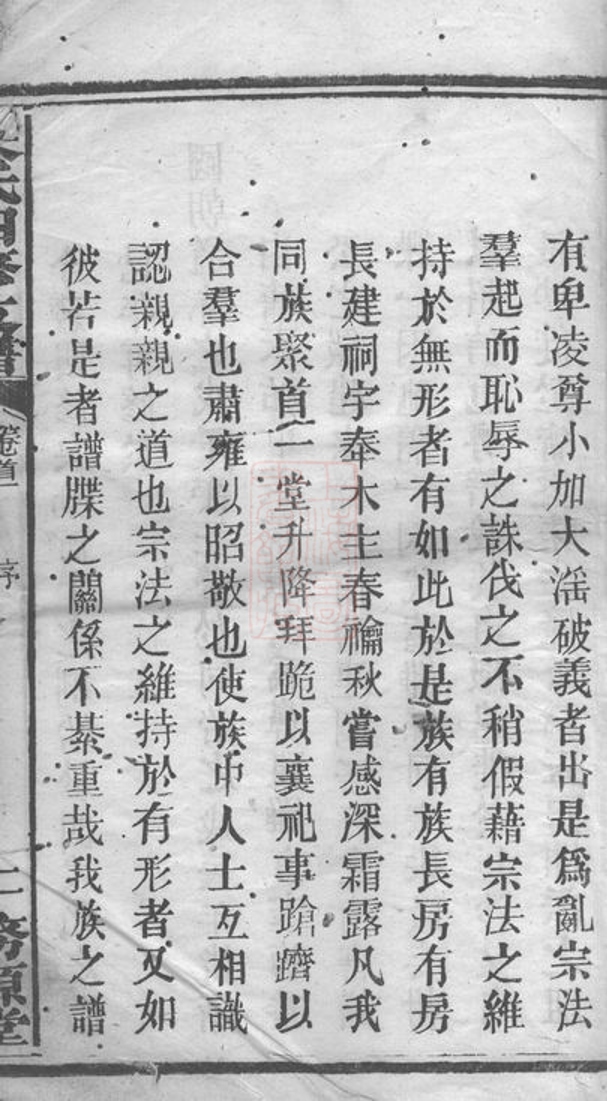 有卑凌尊小加大滛破義者出是爲亂宗法
羣起而恥辱之誅伐之不稍假藉宗法之維
持於無形者有如此於是族有族長房有房
長建祠宇奉木主春禴秋嘗感深霜露凡我
同族聚首一堂升降拜跪以襄祀事蹌蹐以
合羣也肅雍以昭敬也使族中人士互相識
認親親之道也宗法之維持於有形者又如
彼若是者譜牒之關係不綦重哉我族之譜
氏四修支譜
卷首
序
二
務源堂